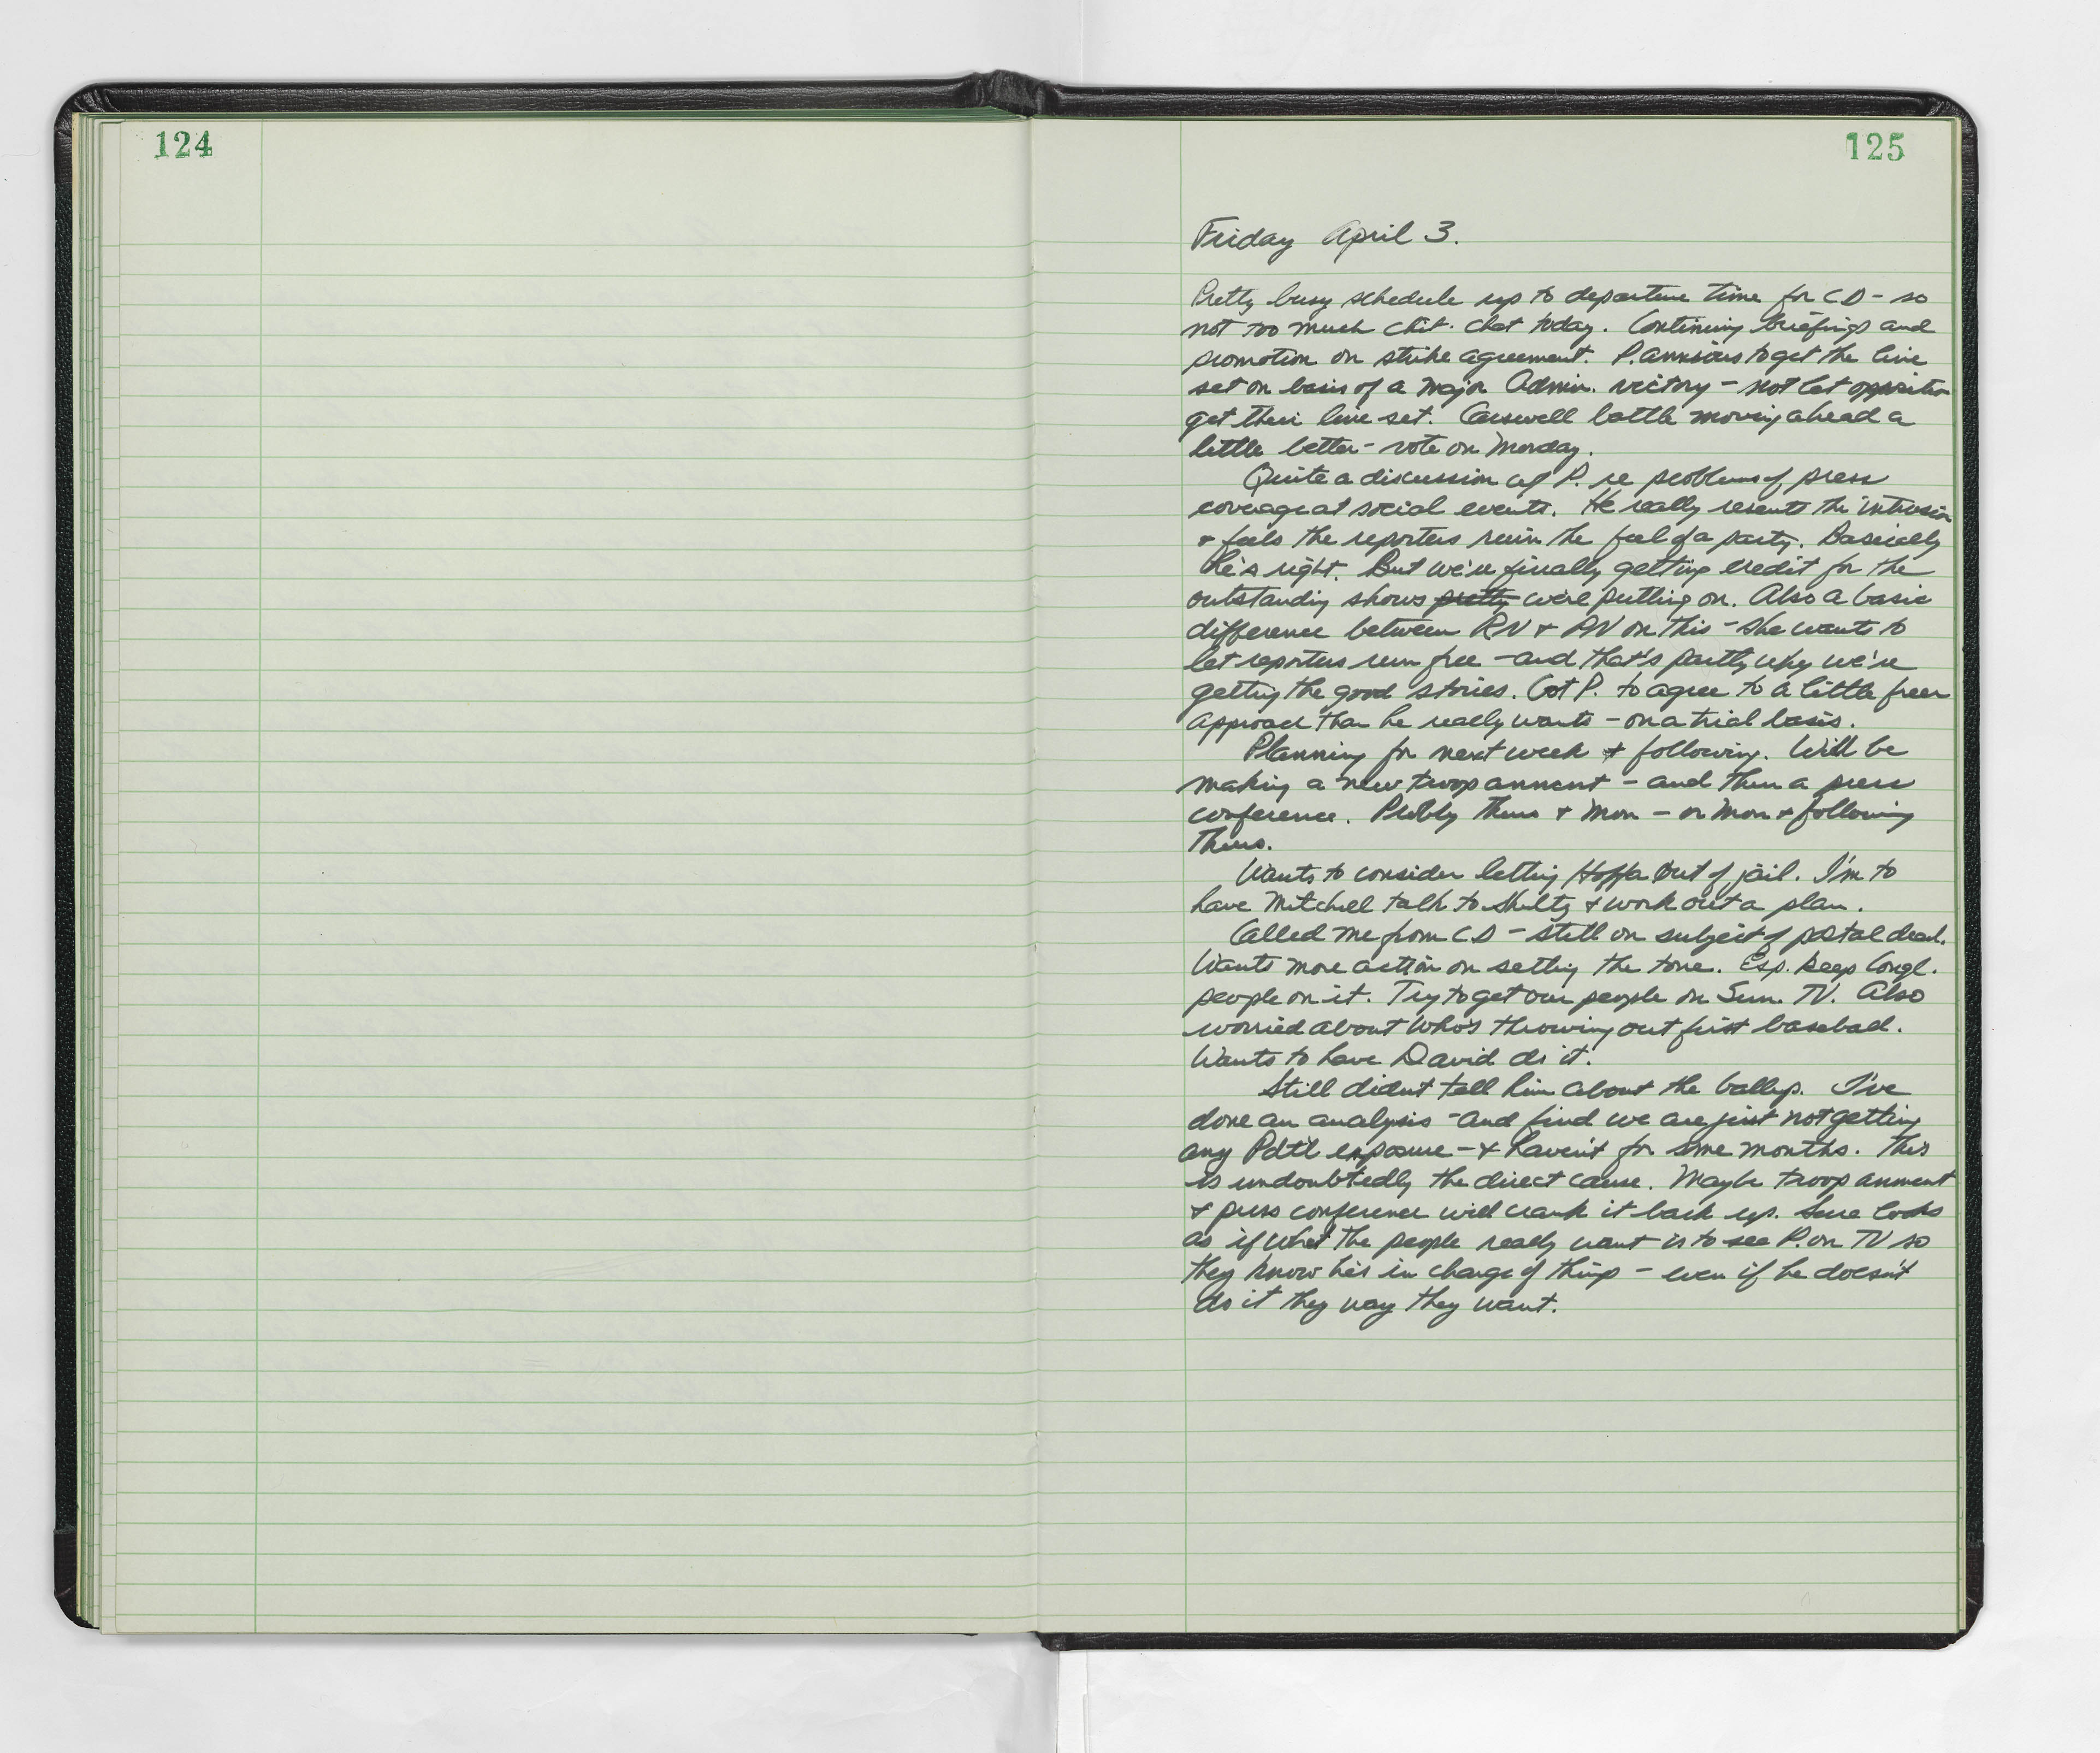 124
125
Friday April 3.
Pretty busy schedule up to departure time for CD - so
not too much chit-chat today. Continuing briefings and
promotion on strike agreement. P. anxious to get the line
set on basis of a major Admin. victory - not let opposition
get their line set. Carswell battle moving ahead a
little better - vote on Monday.
Quite a discussion w/ P. re problems of press
coverage at social events. He really resents the intrusion
+ feels the reporters ruin the feel of a party. Basically
he's right. But we're finally getting credit for the
outstanding shows pretty we're putting on. Also a basic
difference between RN + PN on this - she wants to
let reporters run free - and that's partly why we're
getting the good stories. Got P. to agree to a little freer
approach than he really wants - on a trial basis.
Planning for next week + following. Will be
making a new troop anncmt - and then a press
conference. Prbbly Thurs + Mon - or Mon + following
Thurs.
Wants to consider letting Hoffa out of jail. I'm to
have Mitchell talk to Shultz + work out a plan.
Called me from CD - still on subject of postal deal.
Wants more action on setting the tone. Esp. keep Congl.
people on it. Try to get our people on Sun. TV. Also
worried about who's throwing out first baseball.
Wants to have David do it.
Still didn't tell him about the Gallup. I've
done an analysis - and find we are just not getting
any Pdt'l exposure - + haven't for some months. This
is undoubtedly the direct cause. Maybe troop anncmt
+ press conference will crank it back up. Sure looks
as if what the people really want is to see P. on TV so
they know he's in charge of things - even if he doesn't
do it they way they want.